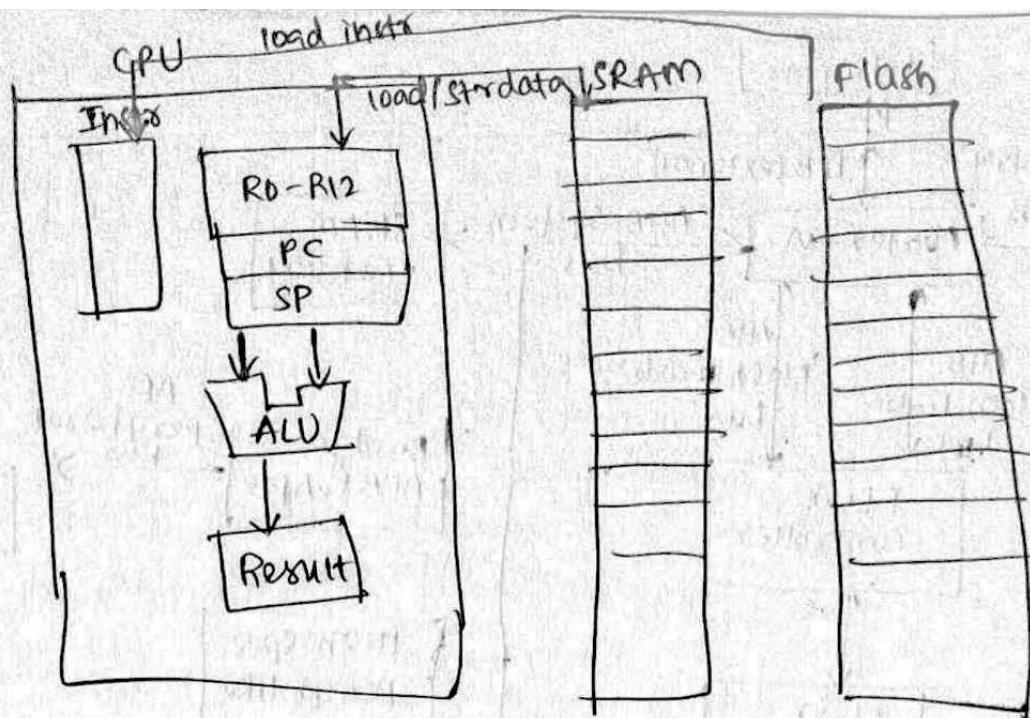 CPU
load instr
load/str data
SRAM
Flash
Instr
R0-R12
PC
SP
ALU
Result